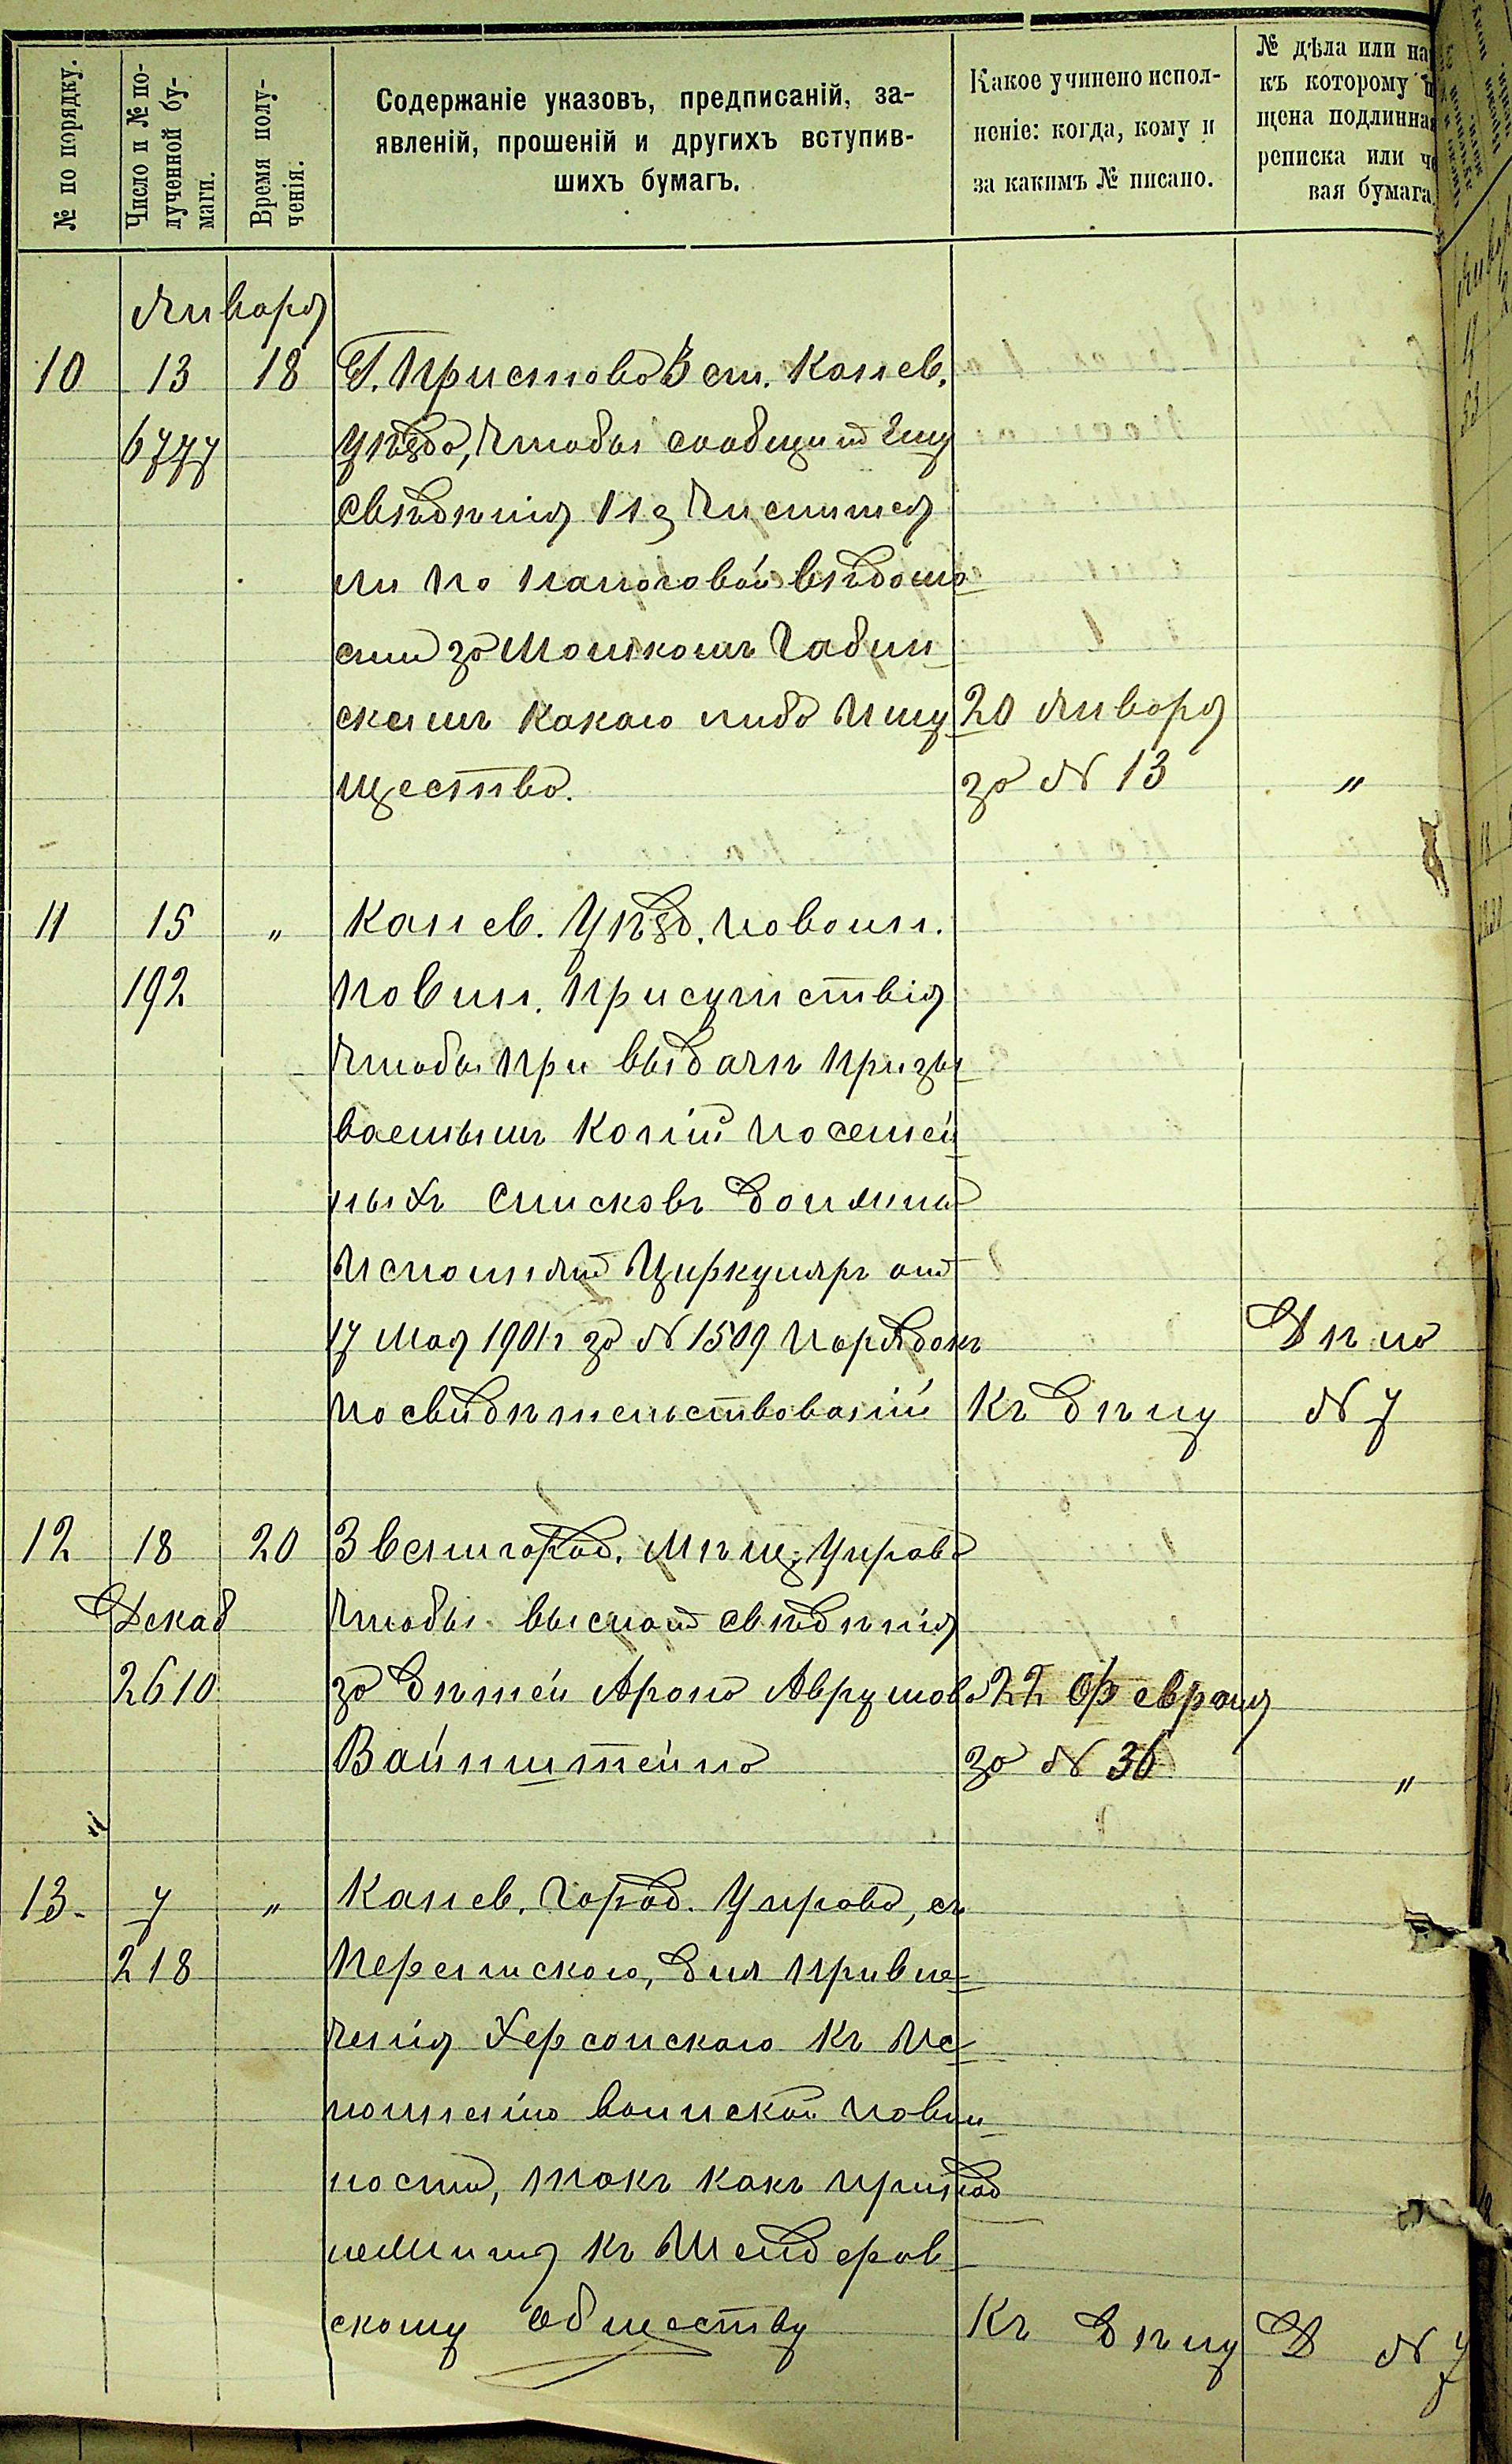 № по порядку.
Число и № по-
лученной бу-
маги.
Время полу-
ченія.
Содержаніе указовъ, предписаній, за-
явленій, прошеній и другихъ вступив-
шихъ бумагъ.
Какое учинено испол-
неніе: когда, кому и
за какимъ № писано.
№ дѣла или на
къ которому
щена подлинна
реписка или че
вая бумага.
Января
10 13 18 Г. Пристава 3 ст. Канев.
6777 Уѣзда, чтобы сообщить Ему
свѣдѣнія Не числится
ли по налоговой вѣдомо
сти за Мошкомъ Габин
скимъ какого либо Иму 20 Января
щества. за № 13 "
11 15 " Канев. Уѣзд. по воин.
192 повин. присутствія
чтобы при выдачѣ призы
ваемымъ копій посемей
ныхъ списковъ должны
исполнять Циркуляръ отъ
17 Мая 1901 г за № 1509 порядокъ Дѣло
по свидѣтельствованій Къ дѣлу № 7
12 18 20 Звенигород. Мѣщ. Управа
Декаб чтобы выслать свѣдѣнія
2610 за дѣтей Арона Аврумова 22 Февраля
Вайнштейна за № 36 "
"
13. 7 " Канев. Город. Управа, съ
218 перепиского, для привле-
ченія Херсонского къ Ис
полненію воинской повин
ности, такъ какъ принад
лежитъ къ Шендеров
скому обществу Къ Дѣлу Д № 7